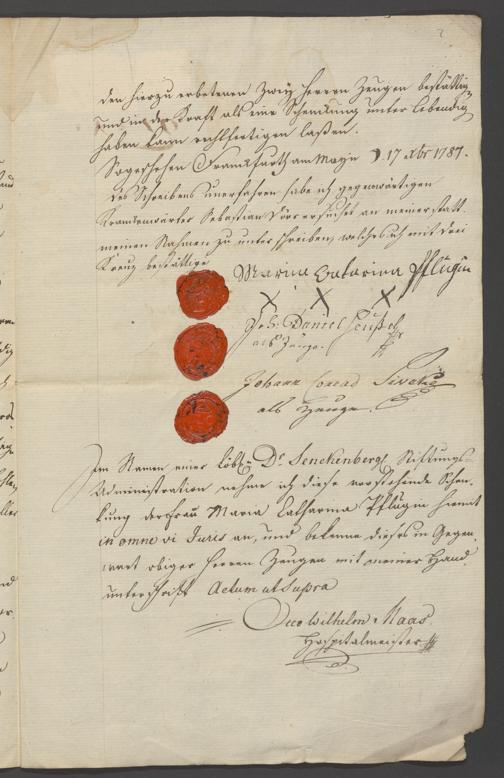 den hierzu erbetenen Zwey Herren Zeugen bestättig
und in der Kraft als eine Schenkung unter Lebendig
haben kann rechtfertigen laßen.
So geschehen Franckfurth am Mayn D. 17 xbr 1787.
des Schreibens unerfahren habe ich gegenwärtigen
Krankenwärter Sebastian ersuchet an meiner statt
meinen Nahmen zu unterschreiben, welches ich mit drei
Kreuz bestättige
Maria Catarina Pflügin
X X X
Joh. Daniel
als Zeuge.
Johann Conrad
als Zeuge.
Im Namen einer löbl. Dr. Senckenbergl. Stiftungs-
Administration nehme ich diese vorstehende Schen-
kung der Frau Maria Catharina Pflügin hiemit
in omne vi Juris an, und bekenne dieses in Gegen-
wart obiger Herren Zeugen mit meiner Hand
unterschrift Actum ut Supra
Otto Wilhelm Maas
Hospitalmeister